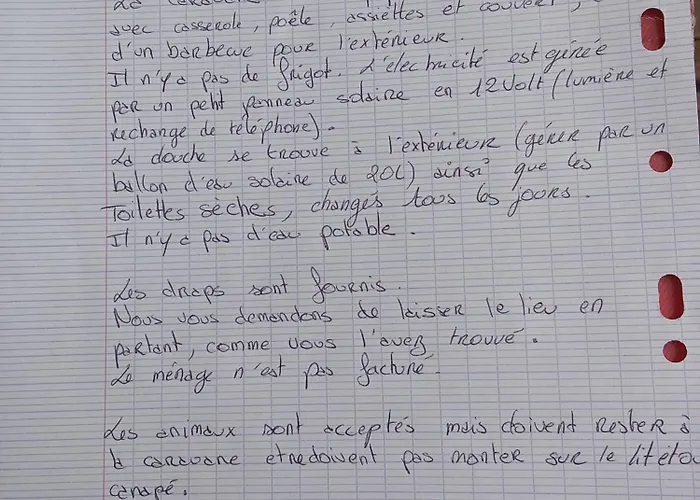 avec casserole, poêle, assiettes et couvert,
d'un barbecue pour l'extérieur.
Il n'y a pas de frigot. L'électricité est gérée
par un petit panneau solaire en 12 Volt (lumière et
rechange de téléphone).
La douche se trouve à l'extérieur (gérer par un
ballon d'eau solaire de 20L) ainsi que les
Toilettes sèches, changés tous les jours.
Il n'y a pas d'eau potable.
Les draps sont fournis.
Nous vous demandons de laisser le lieu en
partant, comme vous l'avez trouvé.
Le ménage n'est pas facturé.
Les animaux sont acceptés mais doivent rester à
la caravane et ne doivent pas monter sur le lit et
canapé.